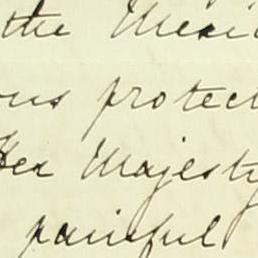 the Mexi
ous protect
Her Majesty
painful